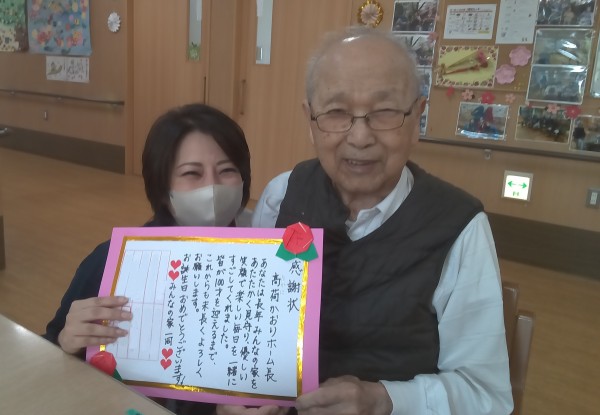 感謝状
高荷かおりホーム長
あなたは長年みんなの家を
あたたかく見守り、優しい
笑顔で楽しい毎日を一緒に
すごしてくれました。
皆が100才を迎えるまで、
これからも末長くよろしく
お願いします。
お誕生日おめでとうございます!
みんなの家一同